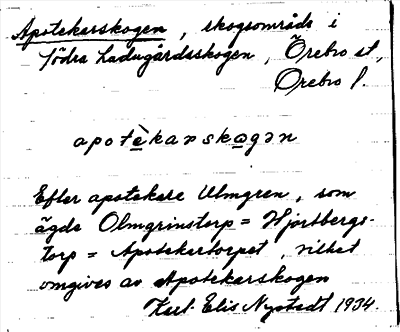 Apotekarskogen, skogsområde i
Södra Ladugårdsskogen, Örebro st,
Örebro l.
apotèkarskogən
Efter apotekare Ulmgren, som
ägde Olmgrinstorp = Hjortbergs-
torp = Apotekartorpet, vilket
omgives av Apotekarskogen
Karl-Elis Nystedt 1934.